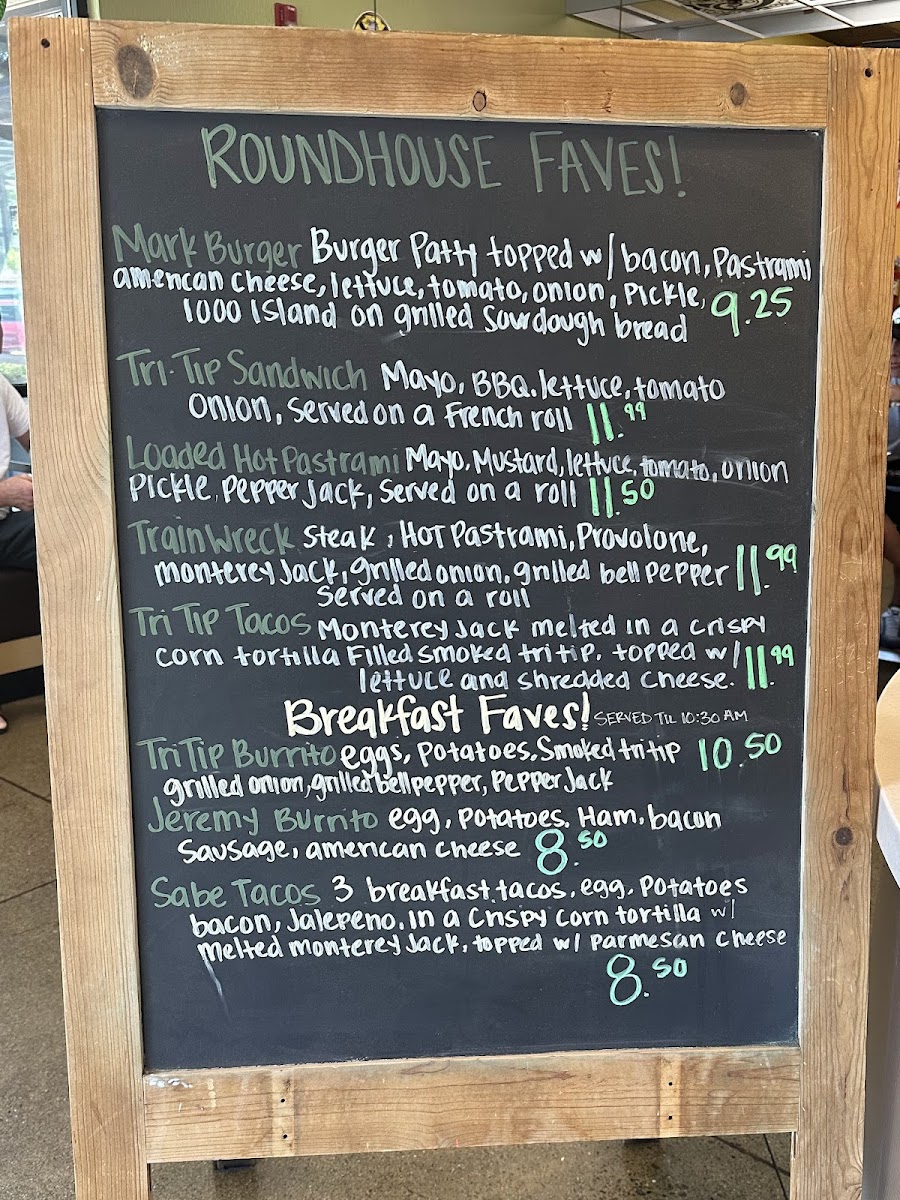 ROUNDHOUSE FAVES!
Mark Burger Burger Patty topped w/ bacon, Pastrami
american cheese, lettuce, tomato, onion, Pickle, 9.25
1000 Island on grilled Sourdough bread
Tri-Tip Sandwich Mayo, BBQ. lettuce, tomato
onion, Served on a French roll 11.99
Loaded Hot Pastrami Mayo, Mustard, lettuce, tomato, onion
Pickle, Pepper Jack, Served on a roll 11.50
Train Wreck Steak, Hot Pastrami, Provolone,
monterey Jack, grilled onion, grilled bell Pepper 11.99
Served on a roll
Tri Tip Tacos Monterey Jack melted in a crispy
corn tortilla Filled smoked tri tip. topped w/ 11.99
lettuce and shredded cheese.
Breakfast Faves! SERVED TIL 10:30 AM
Tri Tip Burrito eggs, Potatoes, Smoked tri tip 10.50
grilled onion, grilled bell pepper, Pepper Jack
Jeremy Burrito egg, Potatoes. Ham, bacon
Sausage, american cheese 8.50
Sabe Tacos 3 breakfast tacos, egg, Potatoes
bacon, Jalepeno, in a Crispy corn tortilla w/
melted monterey Jack, topped w/ Parmesan cheese
8.50